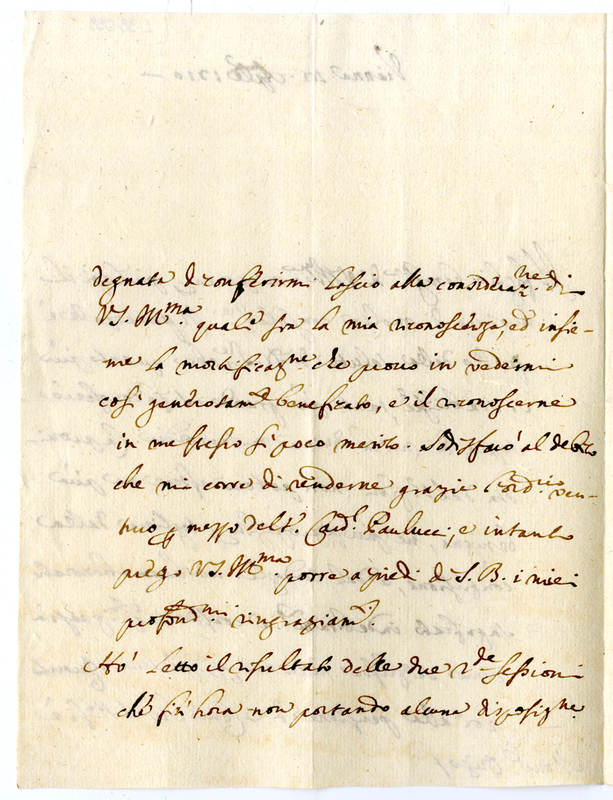 degnata di conferirmi. Lascio alla consideraz.ne di
VS. Ill.ma qual'è sia la mia riconoscenza, ed insie-
me la mortificaz.ne che provo in vedermi
così generosam.te beneficato, e il riconoscerne
in me stesso sì poco merito. Sodisfarò al debito
che mi corre di renderne grazie l'ord.rio ven-
turo p mezzo del S. Card.l Paulucci, e intanto
prego VS. Ill.ma porre a piedi di S. B. i miei
profond.mi ringraziam.ti
Hò letto il risultato delle due 2.de sessioni
che fin' hora non portando alcuna disposiz.ne